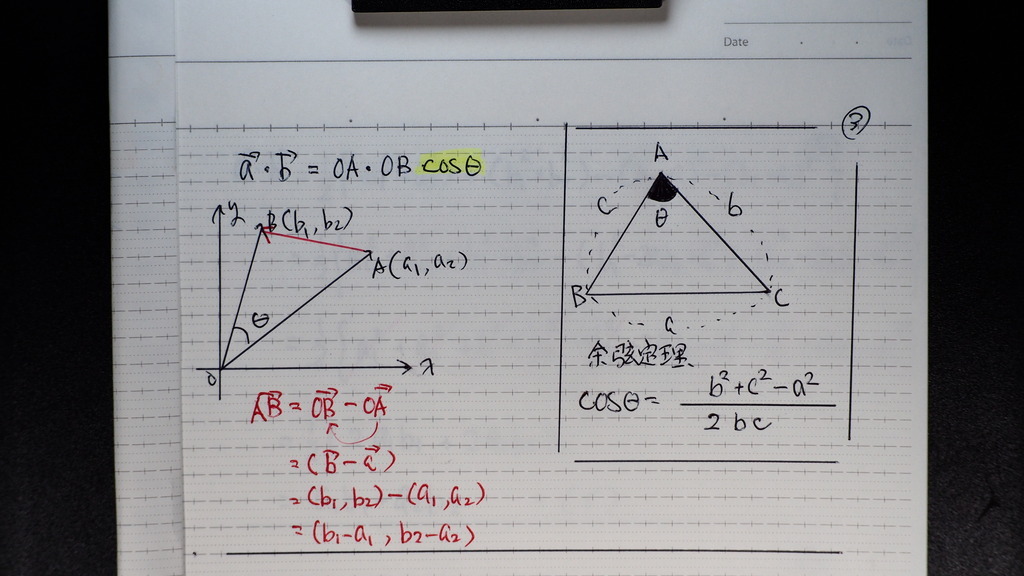 Date
③
a⃗·b⃗ = OA·OB cosθ
y
B(b₁,b₂)
A(a₁,a₂)
θ
O
x
AB⃗ = OB⃗ - OA⃗
= (b⃗ - a⃗)
= (b₁,b₂) - (a₁,a₂)
= (b₁-a₁, b₂-a₂)
A
c
θ
b
B
C
a
余弦定理
cosθ = (b²+c²-a²) / 2bc